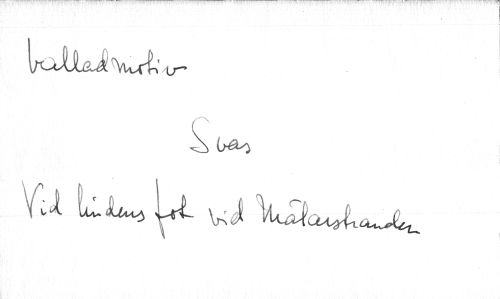 balladmotiv
Svas
Vid lindens fot vid Mälarstranden